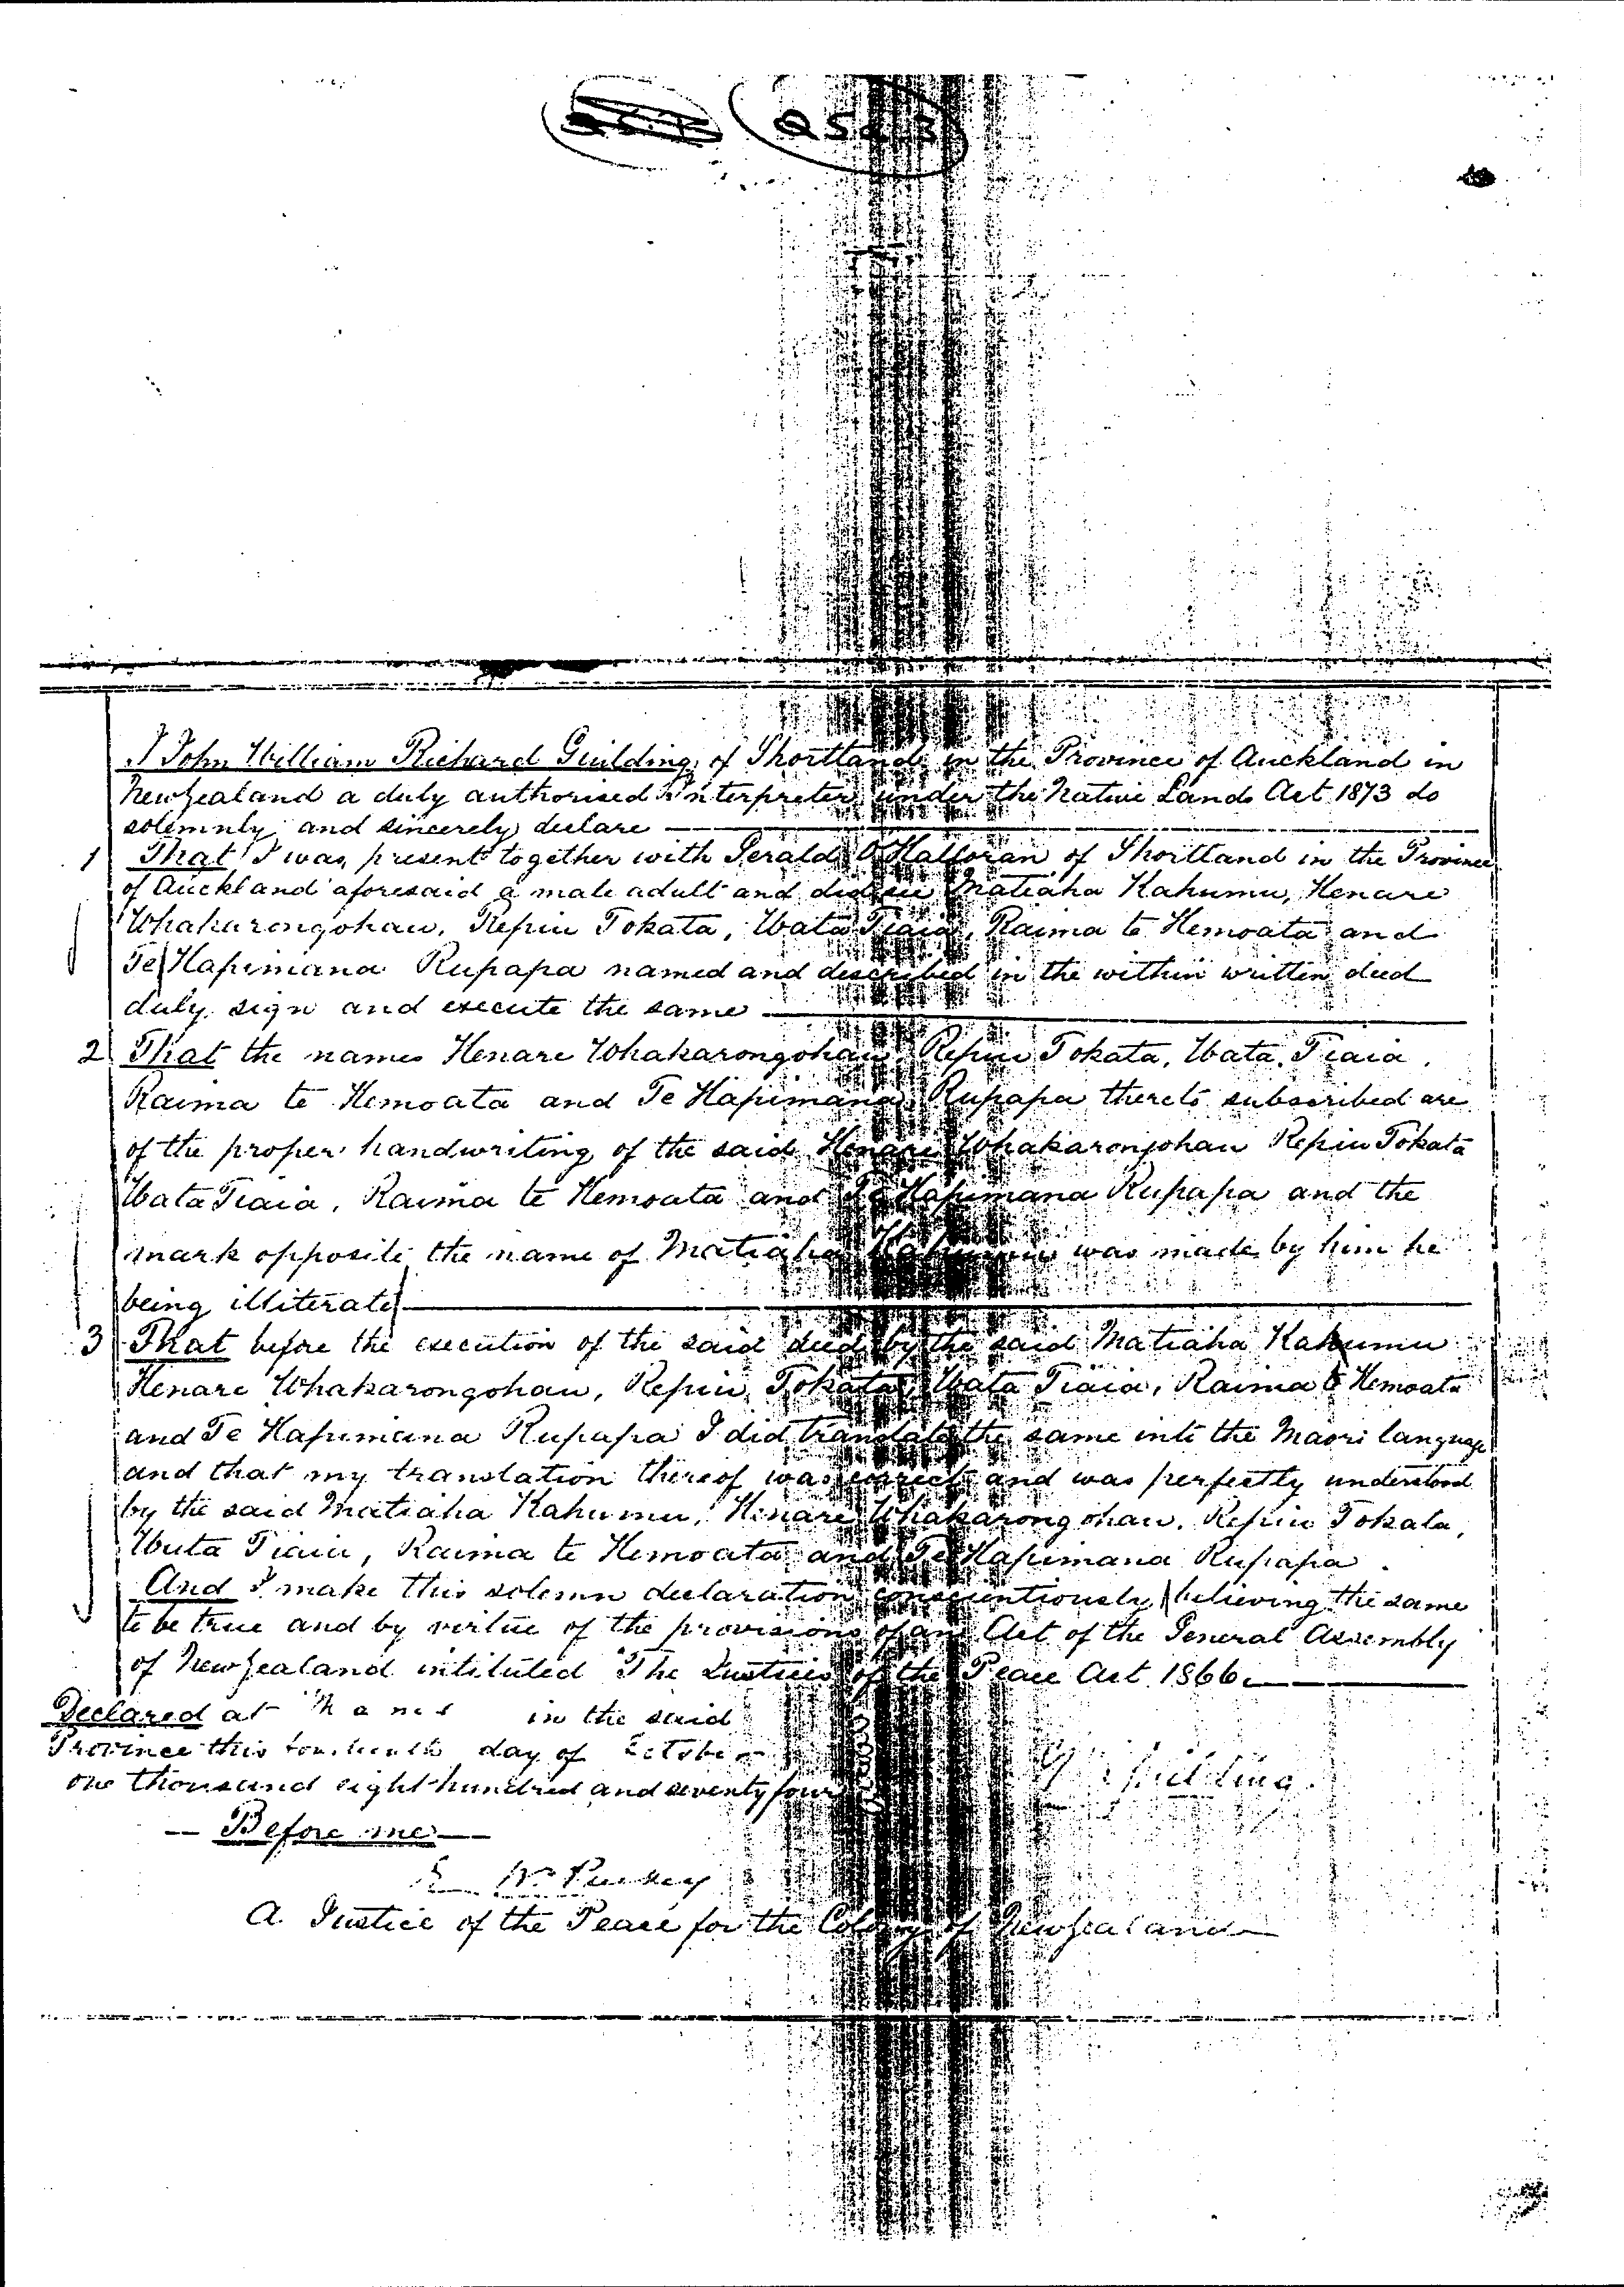 I John William Richard Guilding of Shortland in the Province of Auckland in
New Zealand a duly authorised Interpreter under the Native Lands Act 1873 do
solemnly and sincerely declare
1 That I was present together with Gerald O'Halloran of Shortland in the Province
of Auckland aforesaid a male adult and did see Matiaha Kahumu, Henare
Whakarongohau, Repiu Tokata, Wata Tiaia, Raima te Hemoata and
Te Hapimana Rupapa named and described in the within written deed
duly sign and execute the same
2 That the names Henare Whakarongohau, Repiu Tokata, Wata Tiaia,
Raima te Hemoata and Te Hapimana Rupapa thereto subscribed are
of the proper handwriting of the said Henare Whakarongohau Repiu Tokata
Wata Tiaia, Raima te Hemoata and Te Hapimana Rupapa and the
mark opposite the name of Matiaha was made by him he
being illiterate
3 That before the execution of the said deed by the said Matiaha Kahumu
Henare Whakarongohau, Repiu Tokata, Wata Tiaia, Raima te Hemoata
and Te Hapimana Rupapa I did translate the same into the Maori language
and that my translation thereof was correct and was perfectly understood
by the said Matiaha Kahumu, Henare Whakarongohau, Repiu Tokata,
Wata Tiaia, Raima te Hemoata and Te Hapimana Rupapa.
And I make this solemn declaration conscientiously believing the same
to be true and by virtue of the provisions of an Act of the General Assembly
of New Zealand intituled The Justices of the Peace Act 1866.
Declared at Thames in the said
Province this fourteenth day of October
one thousand eight hundred and seventy four
Guilding
Before me
E W Puckey
A Justice of the Peace for the Colony of New Zealand